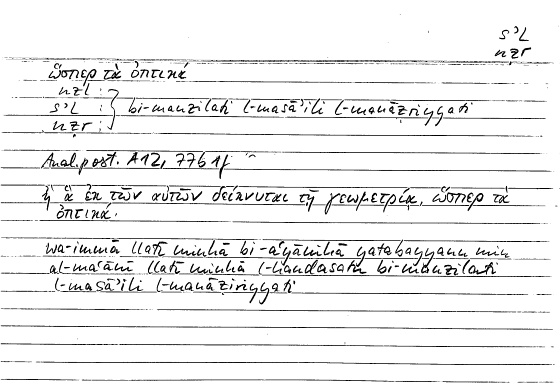 s’l
nẓr
ὥσπερ τὰ ὀπτικά
nzl :
s’l : } bi-manzilati l-masā’ili l-manāẓiriyyati
nẓr :
Anal. post. A12, 77b1f
ἢ ἃ ἐκ τῶν αὐτῶν δείκνυται τῇ γεωμετρίᾳ, ὥσπερ τὰ
ὀπτικά.
wa-immā llatī minhā bi-a‘yānihā yatabayyanu min
al-ma‘ānī llatī minhā l-handasatu bi-manzilati
l-masā’ili l-manāẓiriyyati